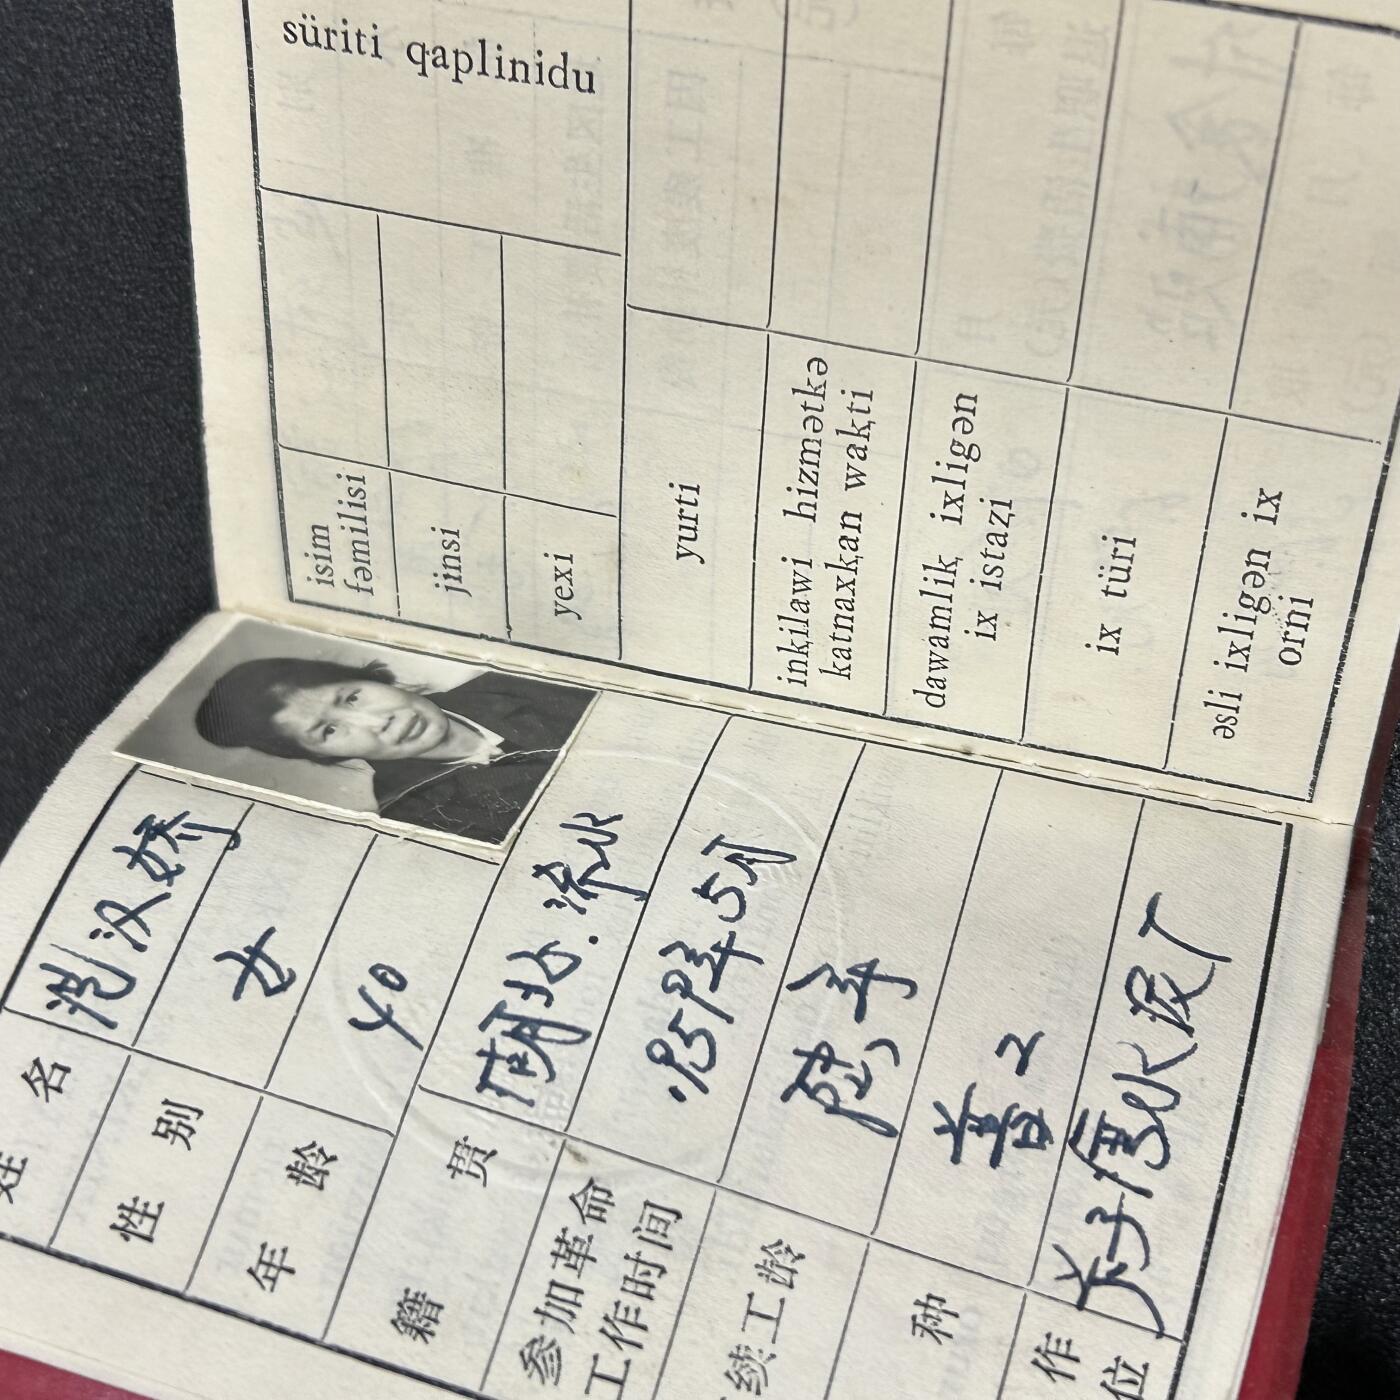 süriti qaplinidu
isim
fəmilisi
jinsi
yexi
yurti
inⱪilawi hizmətkə
ⱪatnaxⱪan waⱪti
dawamliⱪ ixligən
ix istazi
ix türi
əsli ixligən ix
orni
姓 名 汉娇
性 别 女
年 龄 40
籍 贯 湖北.浠水
参加革命
工作时间 年5月
续工龄 年
种 普2
作
位 水泥厂